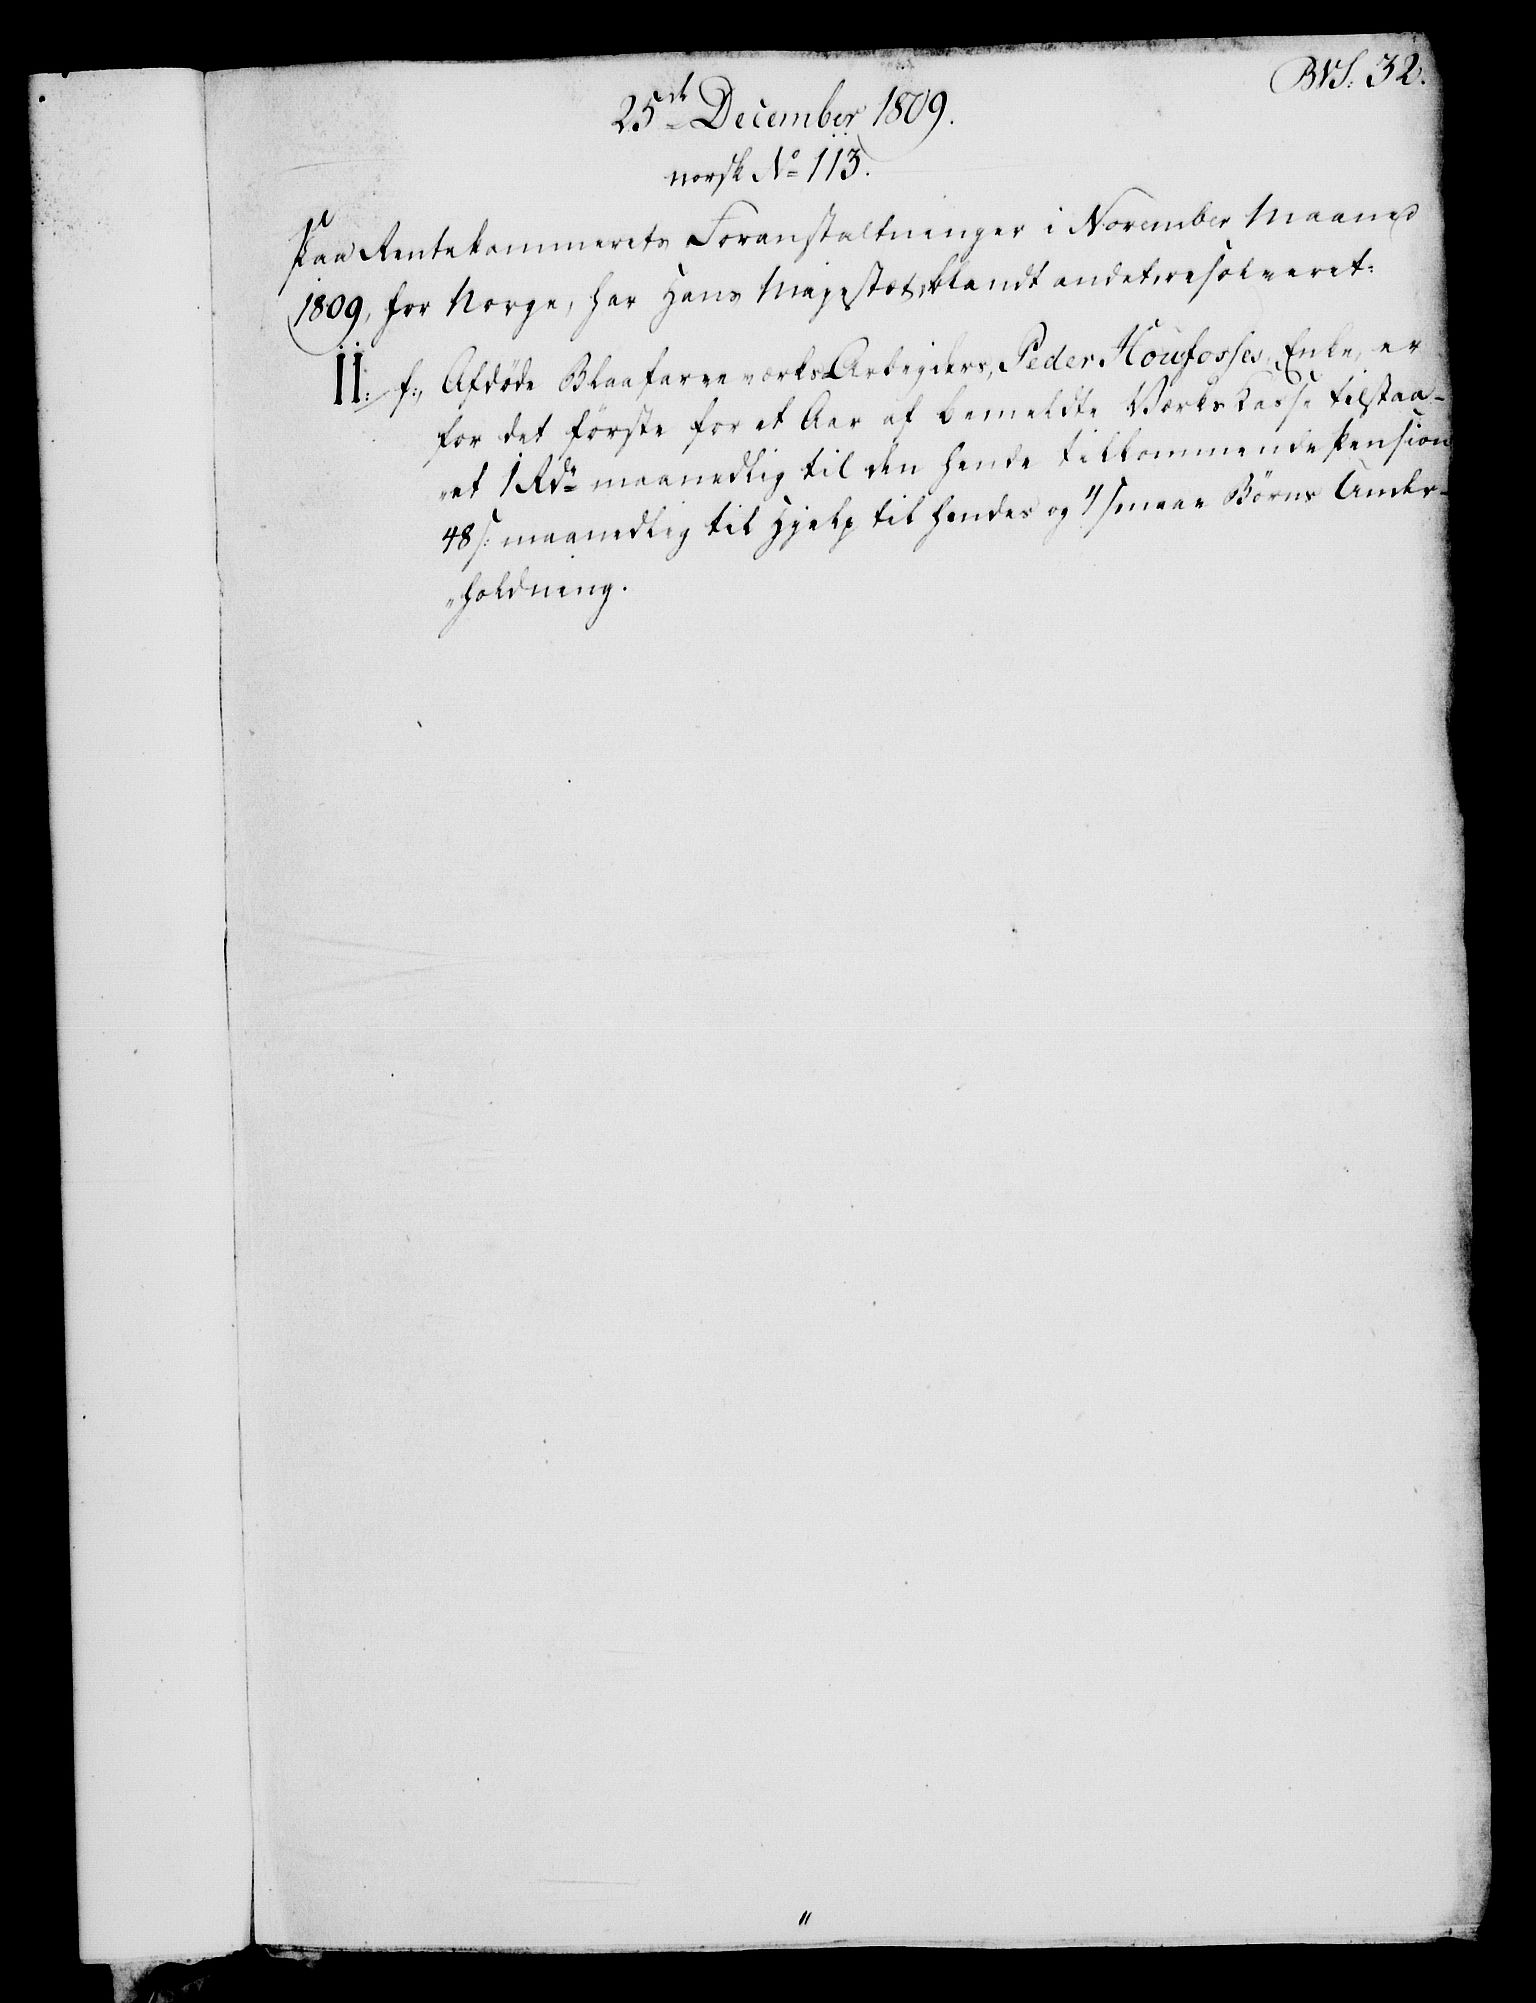 BVS. 32.
25de December 1809.
norsk No 113.
Paa Rentekammerets Foranstaltninger i November Maaned
1809, for Norge, har Hans Majestæt, blandt andet, resolveret:
II. f., Afdøde Blaafarveværks Arbeiders, Peder Houfosses, Enke, er
for det første for et Aar af bemeldte Værks Kasse tilstaa-
"et 1 Rdr maanedlig til den hende tilkommende Pension
48 s: maanedlig til Hjelp til hendes og 4 smaae Børns Under-
"holdning.
"